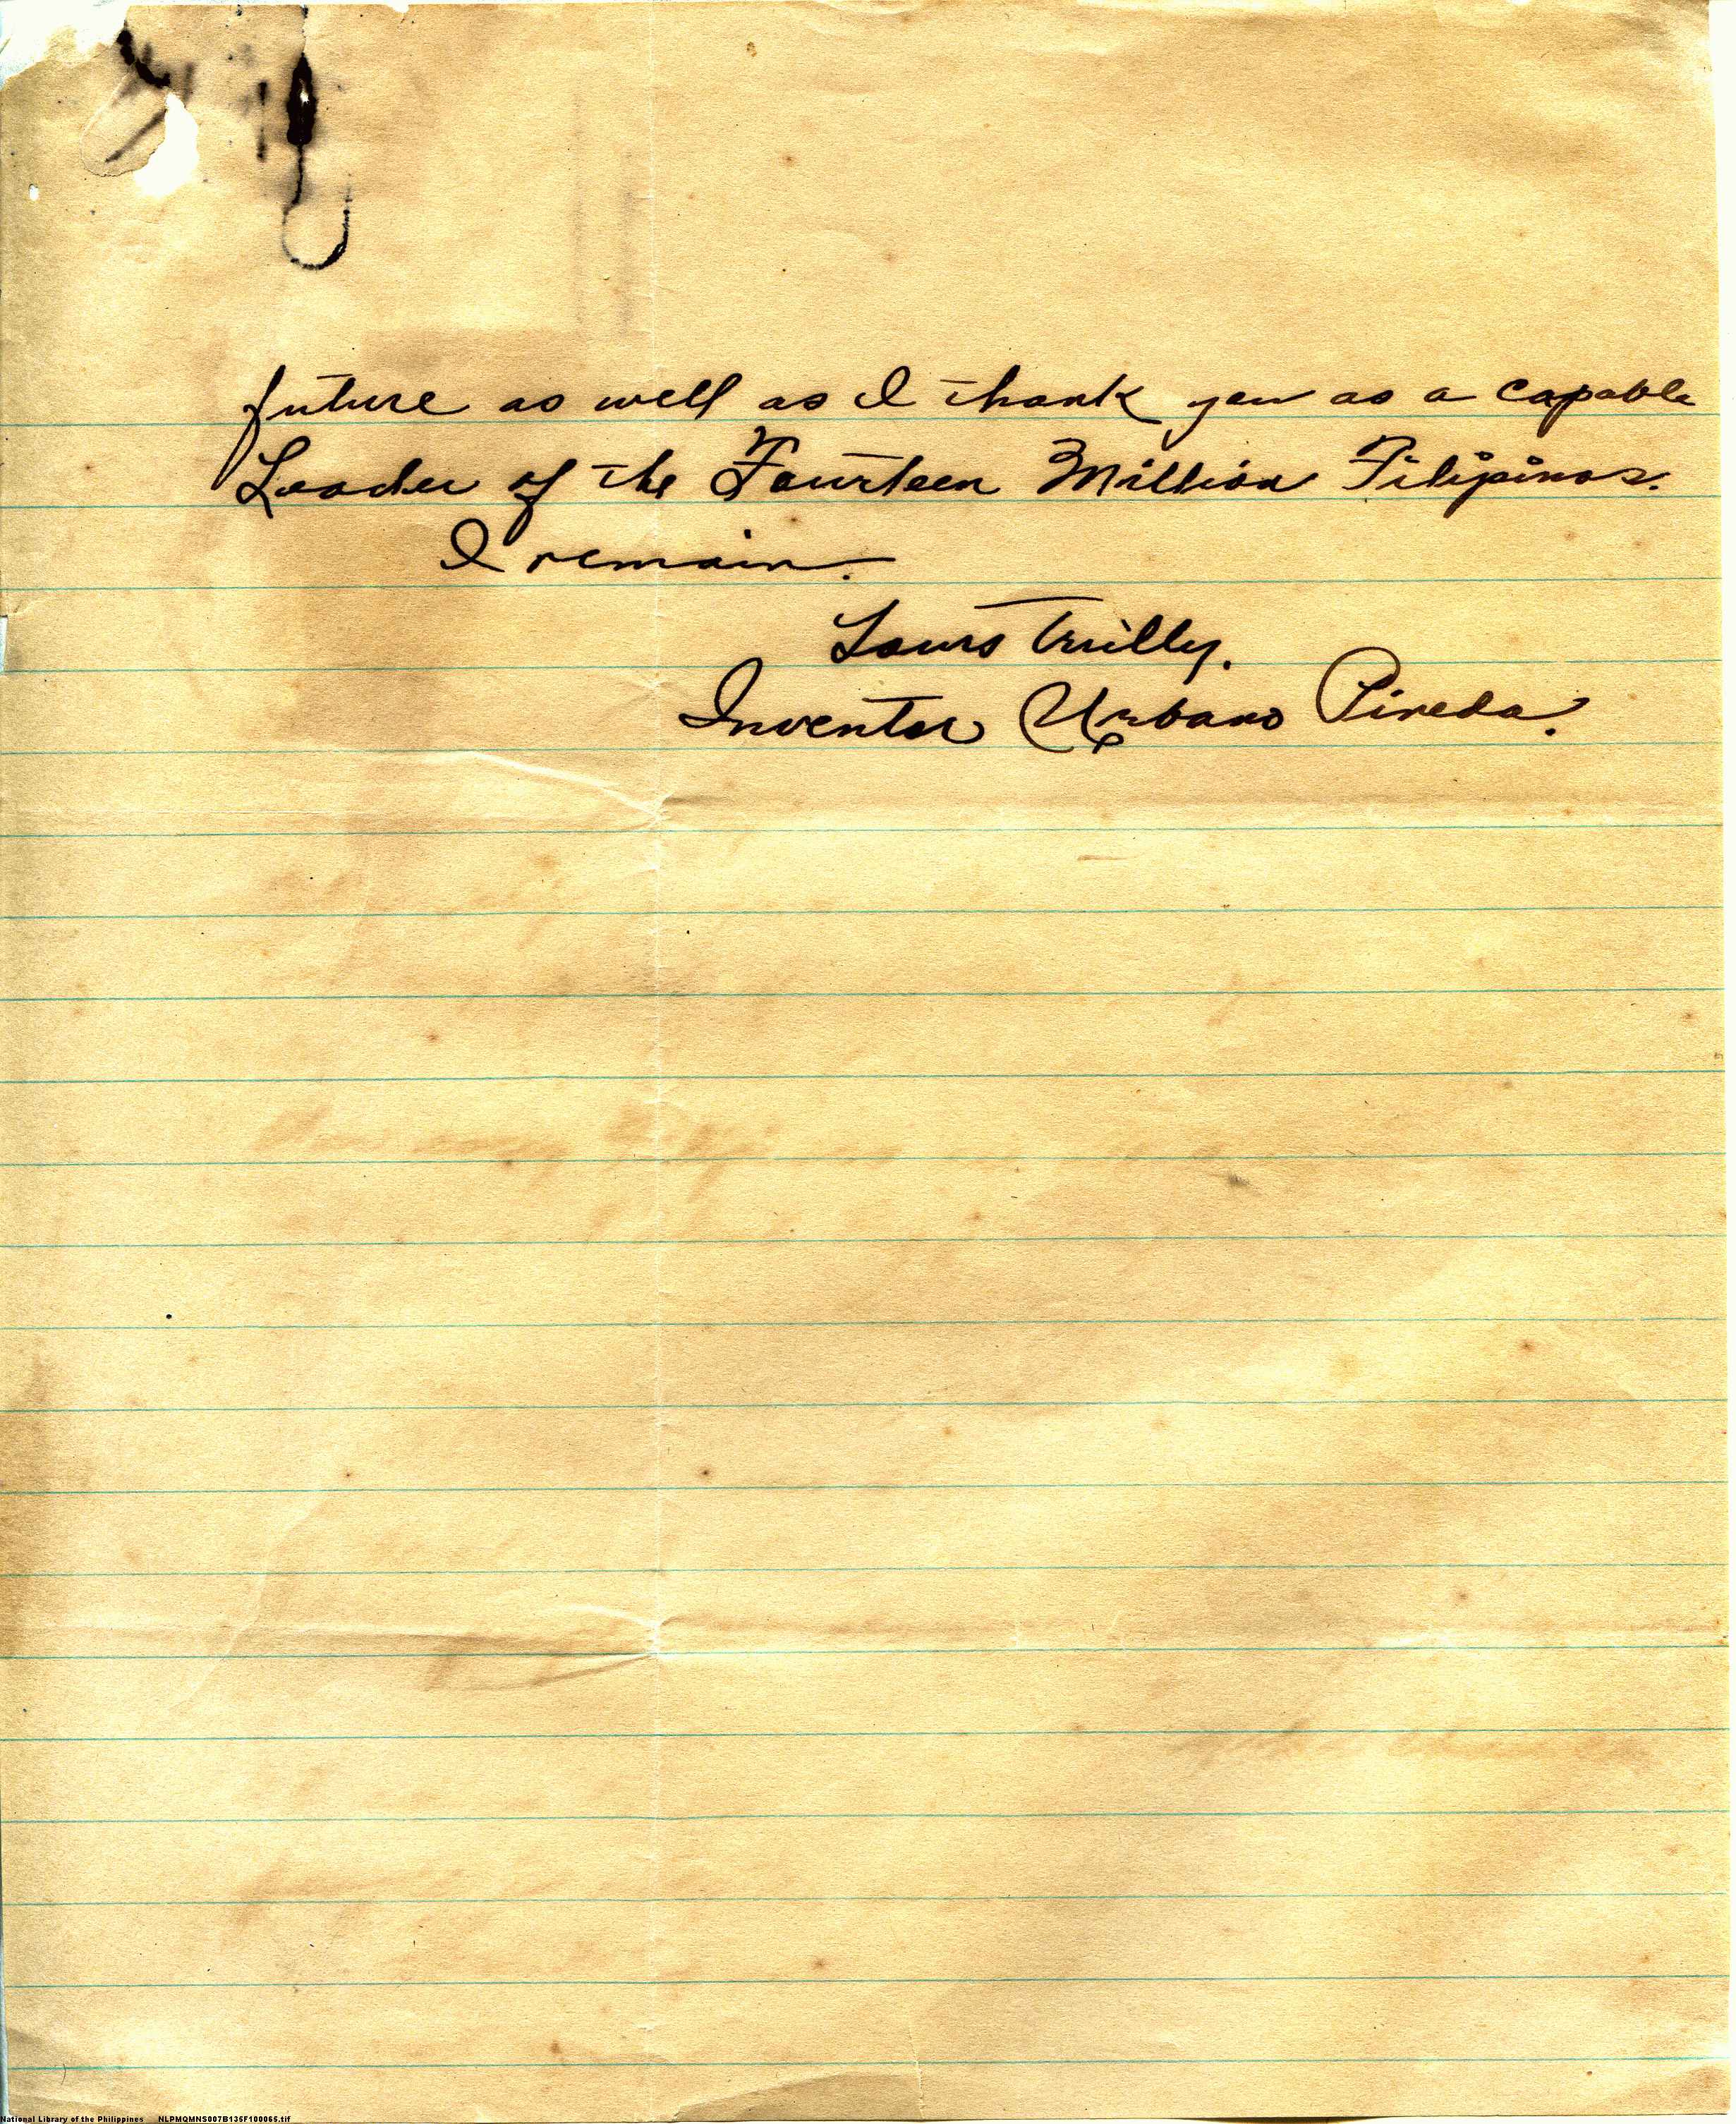 future as well as I thank you as a capable
Leader of the Fourteen Million Filipinos.
I remain.
Yours Trully,
Inventor Urbano Pineda.
National Library of the Philippines NLPMQMNS007B135F100065.tif